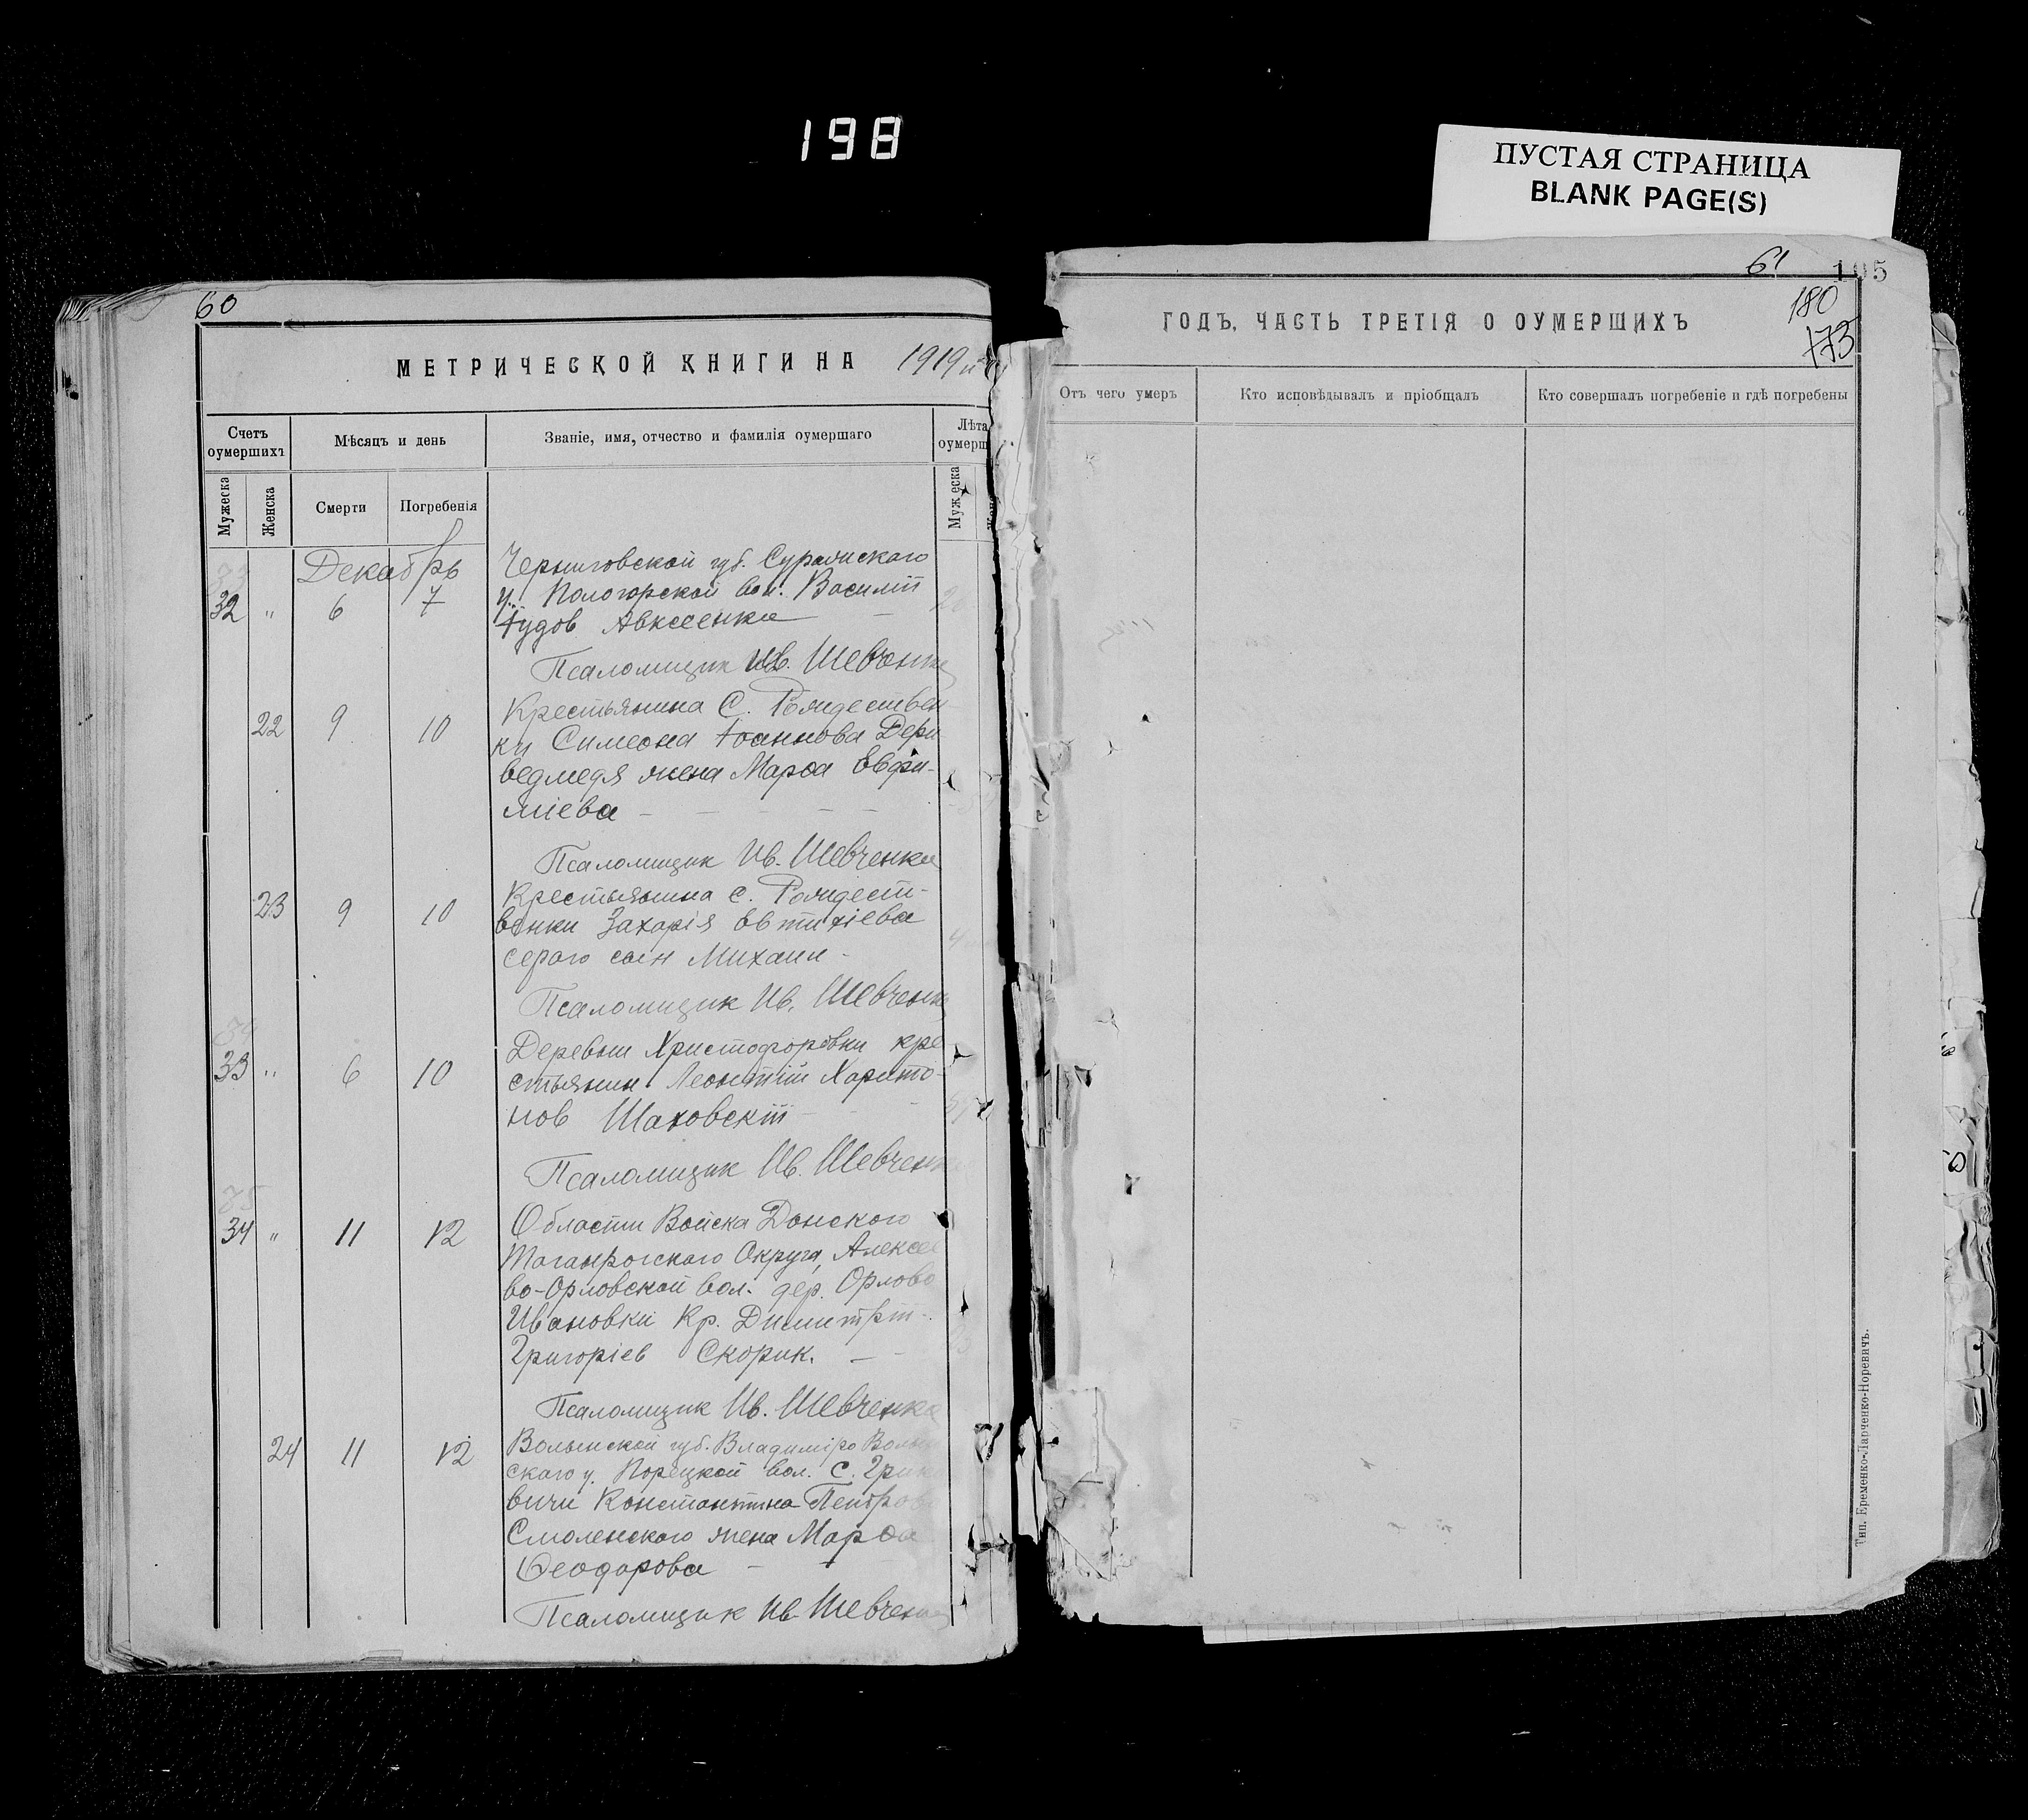 198
ПУСТАЯ СТРАНИЦА
BLANK PAGE(S)
60
МЕТРИЧЕСКОЙ КНИГИ НА 1919й
Счетъ оумершихъ
Мѣсяцъ и день
Званіе, имя, отчество и фамилія оумершаго
Лѣта оумерш
Мужеска
Женска
Смерти
Погребенія
Мужеска
Декабрь
Черниговской губ. Суражскаго
32 " 6 7 у. Пологорской вол. Василій
Іудов Авксеенко
Псаломщик Ив. Шевченко
Крестьянина С. Рождествен
22 9 10 ки Симеона Іоаннова Дери
ведмедя жена Марѳа Евфи-
міева
Псаломщик Ив. Шевченко
Крестьянина с. Рождест-
23 9 10 венки Захарія Евтихіева
серого сын Михаил
Псаломщик Ив. Шевченко
Деревни Христофоровки кре
33 " 6 10 стьянин Леонтій Харито-
нов Шаховскій
Псаломщик Ив. Шевченко
34 " 11 12 Области Войска Донского
Таганрогскаго Округа, Алексее
во-Орловской вол. дер. Орлово
Ивановки Кр. Димитрій
Григоріев Скорик.
Псаломщик Ив. Шевченко
24 11 12 Волынской губ. Владиміро Волын
скаго у. Порецкой вол. С. Грик
вичи Константина Петрова
Смоленского жена Марѳа
Ѳеодорова
Псаломщик Ив. Шевченко
61
105
180
173
ГОДЪ, ЧАСТЬ ТРЕТІЯ О ОУМЕРШИХЪ
Отъ чего умеръ
Кто исповѣдывалъ и пріобщалъ
Кто совершалъ погребеніе и гдѣ погребены
Тип. Еременко-Ларченко-Норевичъ.